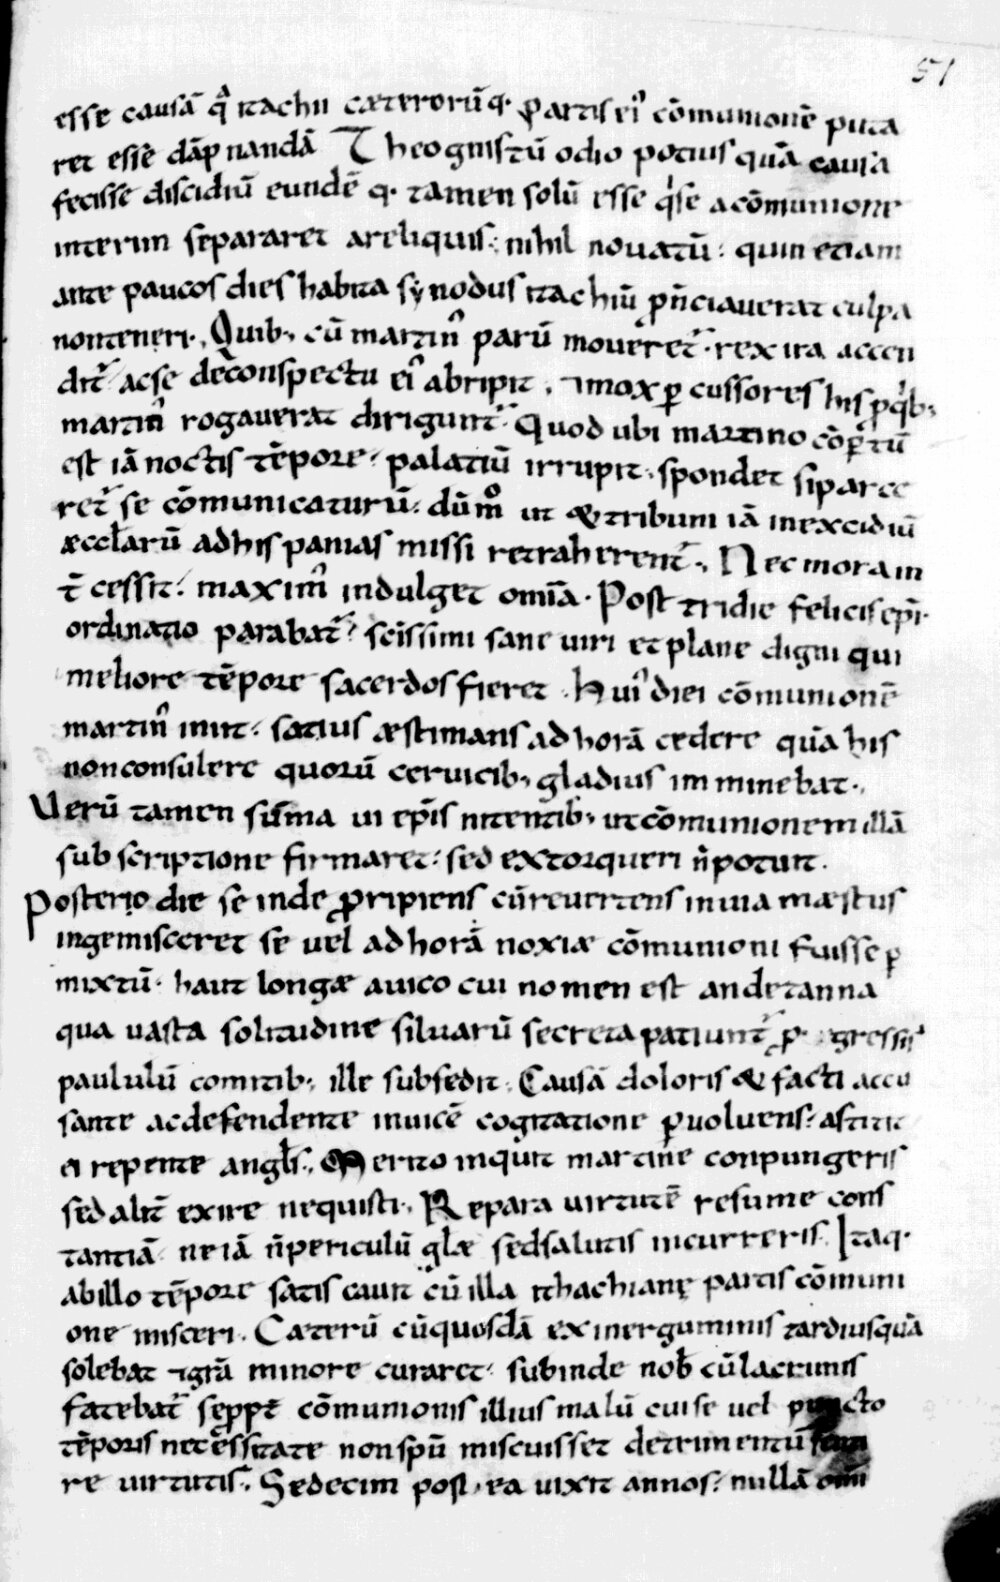 51
esse causā q̄ itachii cæterorūq· ꝑartis eiꝰ cōmunionē puta
ret esse dāpnandā Theognistū odio potius quā causa
fecisse discidiū eundē q· tamen solū esse q̇ se a cōmunione
interim separaret areliquis· nihil nouatū· quin etiam
ante paucos dies habita synodus itachiū ꝓn̄ciauerat culpa
nonteneri· Quib· cū martinꝰ parū mouer&̄· rex ira accen
dit̄· acse deconspectu eiꝰ abripit· ⁊mox ꝑcussores his ꝓ qͥb·
martinꝰ rogauerat diriguntᷣ· Quod ubi martino cōꝑtū
est iā noctis tēpore· palatiū irrupit· spondet siparce
retᷣ se cōmunicaturū· dūmͦ ut & tribuni iā inexcidiū
æccƚarū adhispanias missi retraherentᷣ· Nec mora in
t̄cessit· maximꝰ indulget omīa· Post tridie felicis epī·
ordinatio parabatᷣ· sc̄issimi sane uiri et plane digni qui
meliore tēpore sacerdos fieret· Huiꝰ diei cōmunionē
martinꝰ iniit· satius æstimans ad horā cedere quā his
nonconsulere quorū ceruicib· gladius imminebat·
Uerū tamen sūma ui epīs nitentib· ut cōmunionem illā
subscriptione firmaret· sed extorqueri n̄ potuit·
Posterio die se inde ꝓripiens cū reuertens in uia mæstus
ingemisceret se uel ad horā noxiæ cōmunioni fuisse ꝑ
mixtū· haut longæ auico cui nomen est andetanna
qua uasta solitudine siluarū secreta patiuntᷣ ꝓgressis
paululū comitib· ille subsedit· Causā doloris & facti accu
sante acdefendente inuicē cogitatione ꝑuoluens· astitit
ei repente angƚs· Merito inquit martine conpungeris
sed alit̄ exire nequisti· Repara uirtutē resume cons
tantiā· ne iā n̄ periculū glæ sedsalutis incurreris· Itaq·
abillo tēpore satis cauit cū illa ithachianę partis cōmuni
one misceri· Cæterū cū quosdā ex inerguminis tardius quā
solebat ⁊ grā minore curaret· subinde nob̄ cū lacrimis
fatebatᷣ se ꝓpt̄ cōmunionis illius malū cui se uel puncto
tēporis necessitate non sp̄u miscuisset detrimentū senti
re uirtutis· Sedecim post· ea uixit annos· nullā